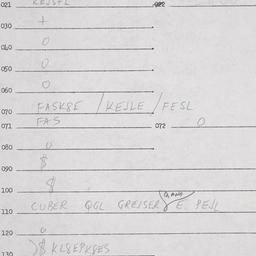 021 KEJSFL 022
030 +
040 0
050 0
060 0
070 FASK8E / KEJLE / FESL
071 FAS 072 0
080 0
090 $
100 $
QAND
110 CUBER QGL GREJSER E PEJL
120 0
130 $ KL8EPK8ES